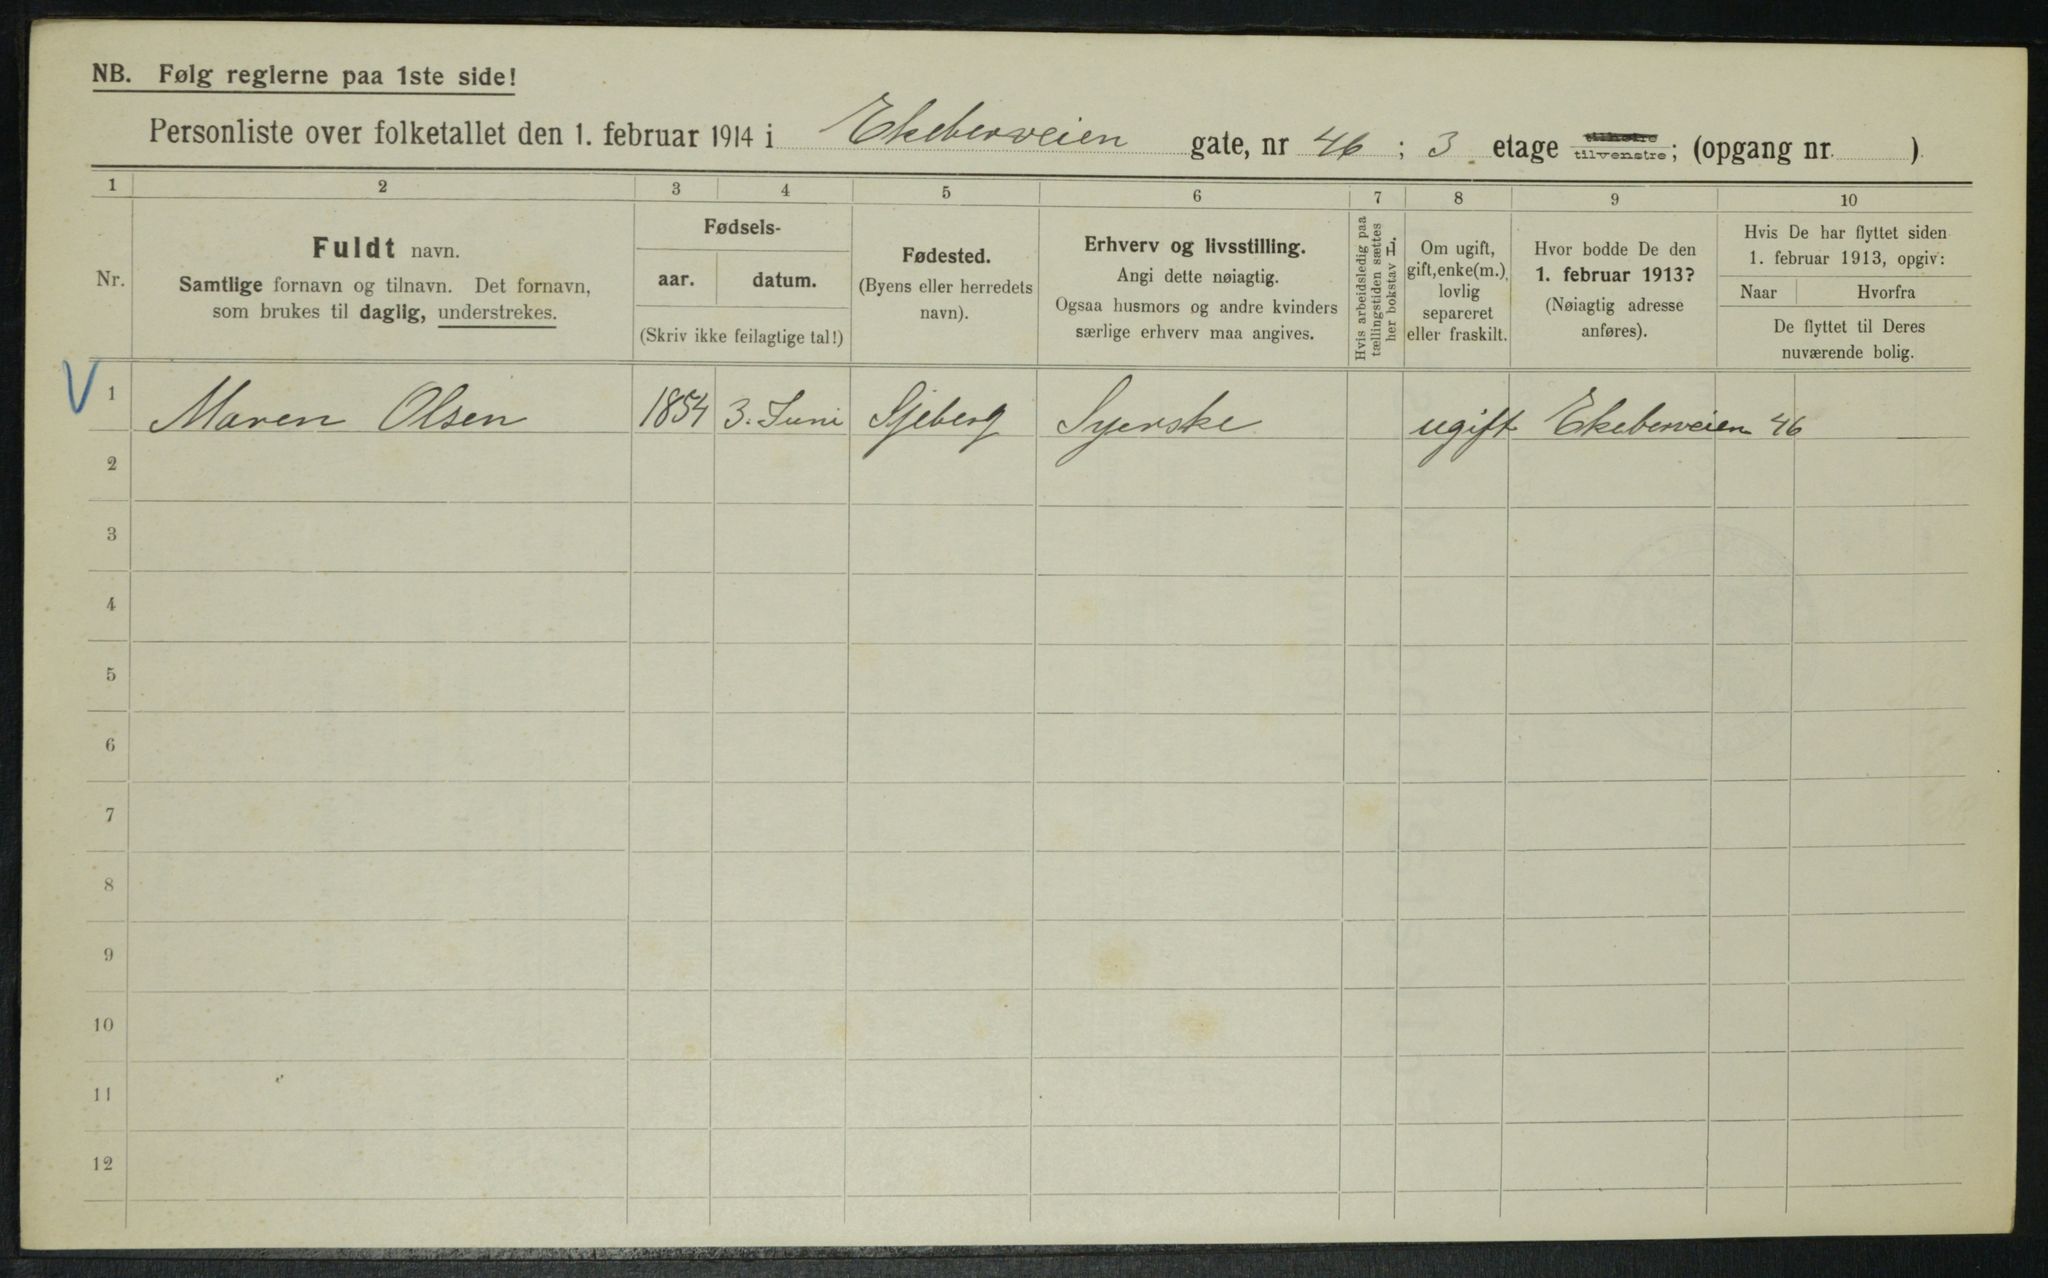 NB. Følg reglerne paa 1ste side!
Personliste over folketallet den 1. februar 1914 i Ekeberveien gate, nr 46 ; 3 etage tilhøire tilvenstre; (opgang nr. )
1 2 3 4 5 6 7 8 9 10
Nr.
Fuldt navn.
Samtlige fornavn og tilnavn. Det fornavn,
som brukes til daglig, understrekes.
Fødsels-
aar. datum.
(Skriv ikke feilagtige tal!)
Fødested.
(Byens eller herredets
navn).
Erhverv og livsstilling.
Angi dette nøiagtig.
Ogsaa husmors og andre kvinders
særlige erhverv maa angives.
Hvis arbeidsledig paa
tællingstiden sættes
her bokstav H.
Om ugift,
gift, enke(m.),
lovlig
separeret
eller fraskilt.
Hvor bodde De den
1. februar 1913?
(Nøiagtig adresse
anføres).
Hvis De har flyttet siden
1. februar 1913, opgiv:
Naar Hvorfra
De flyttet til Deres
nuværende bolig.
V 1 Maren Olsen 1854 3. Juni Sjeberg Syerske ugift Ekeberveien 46
2
3
4
5
6
7
8
9
10
11
12